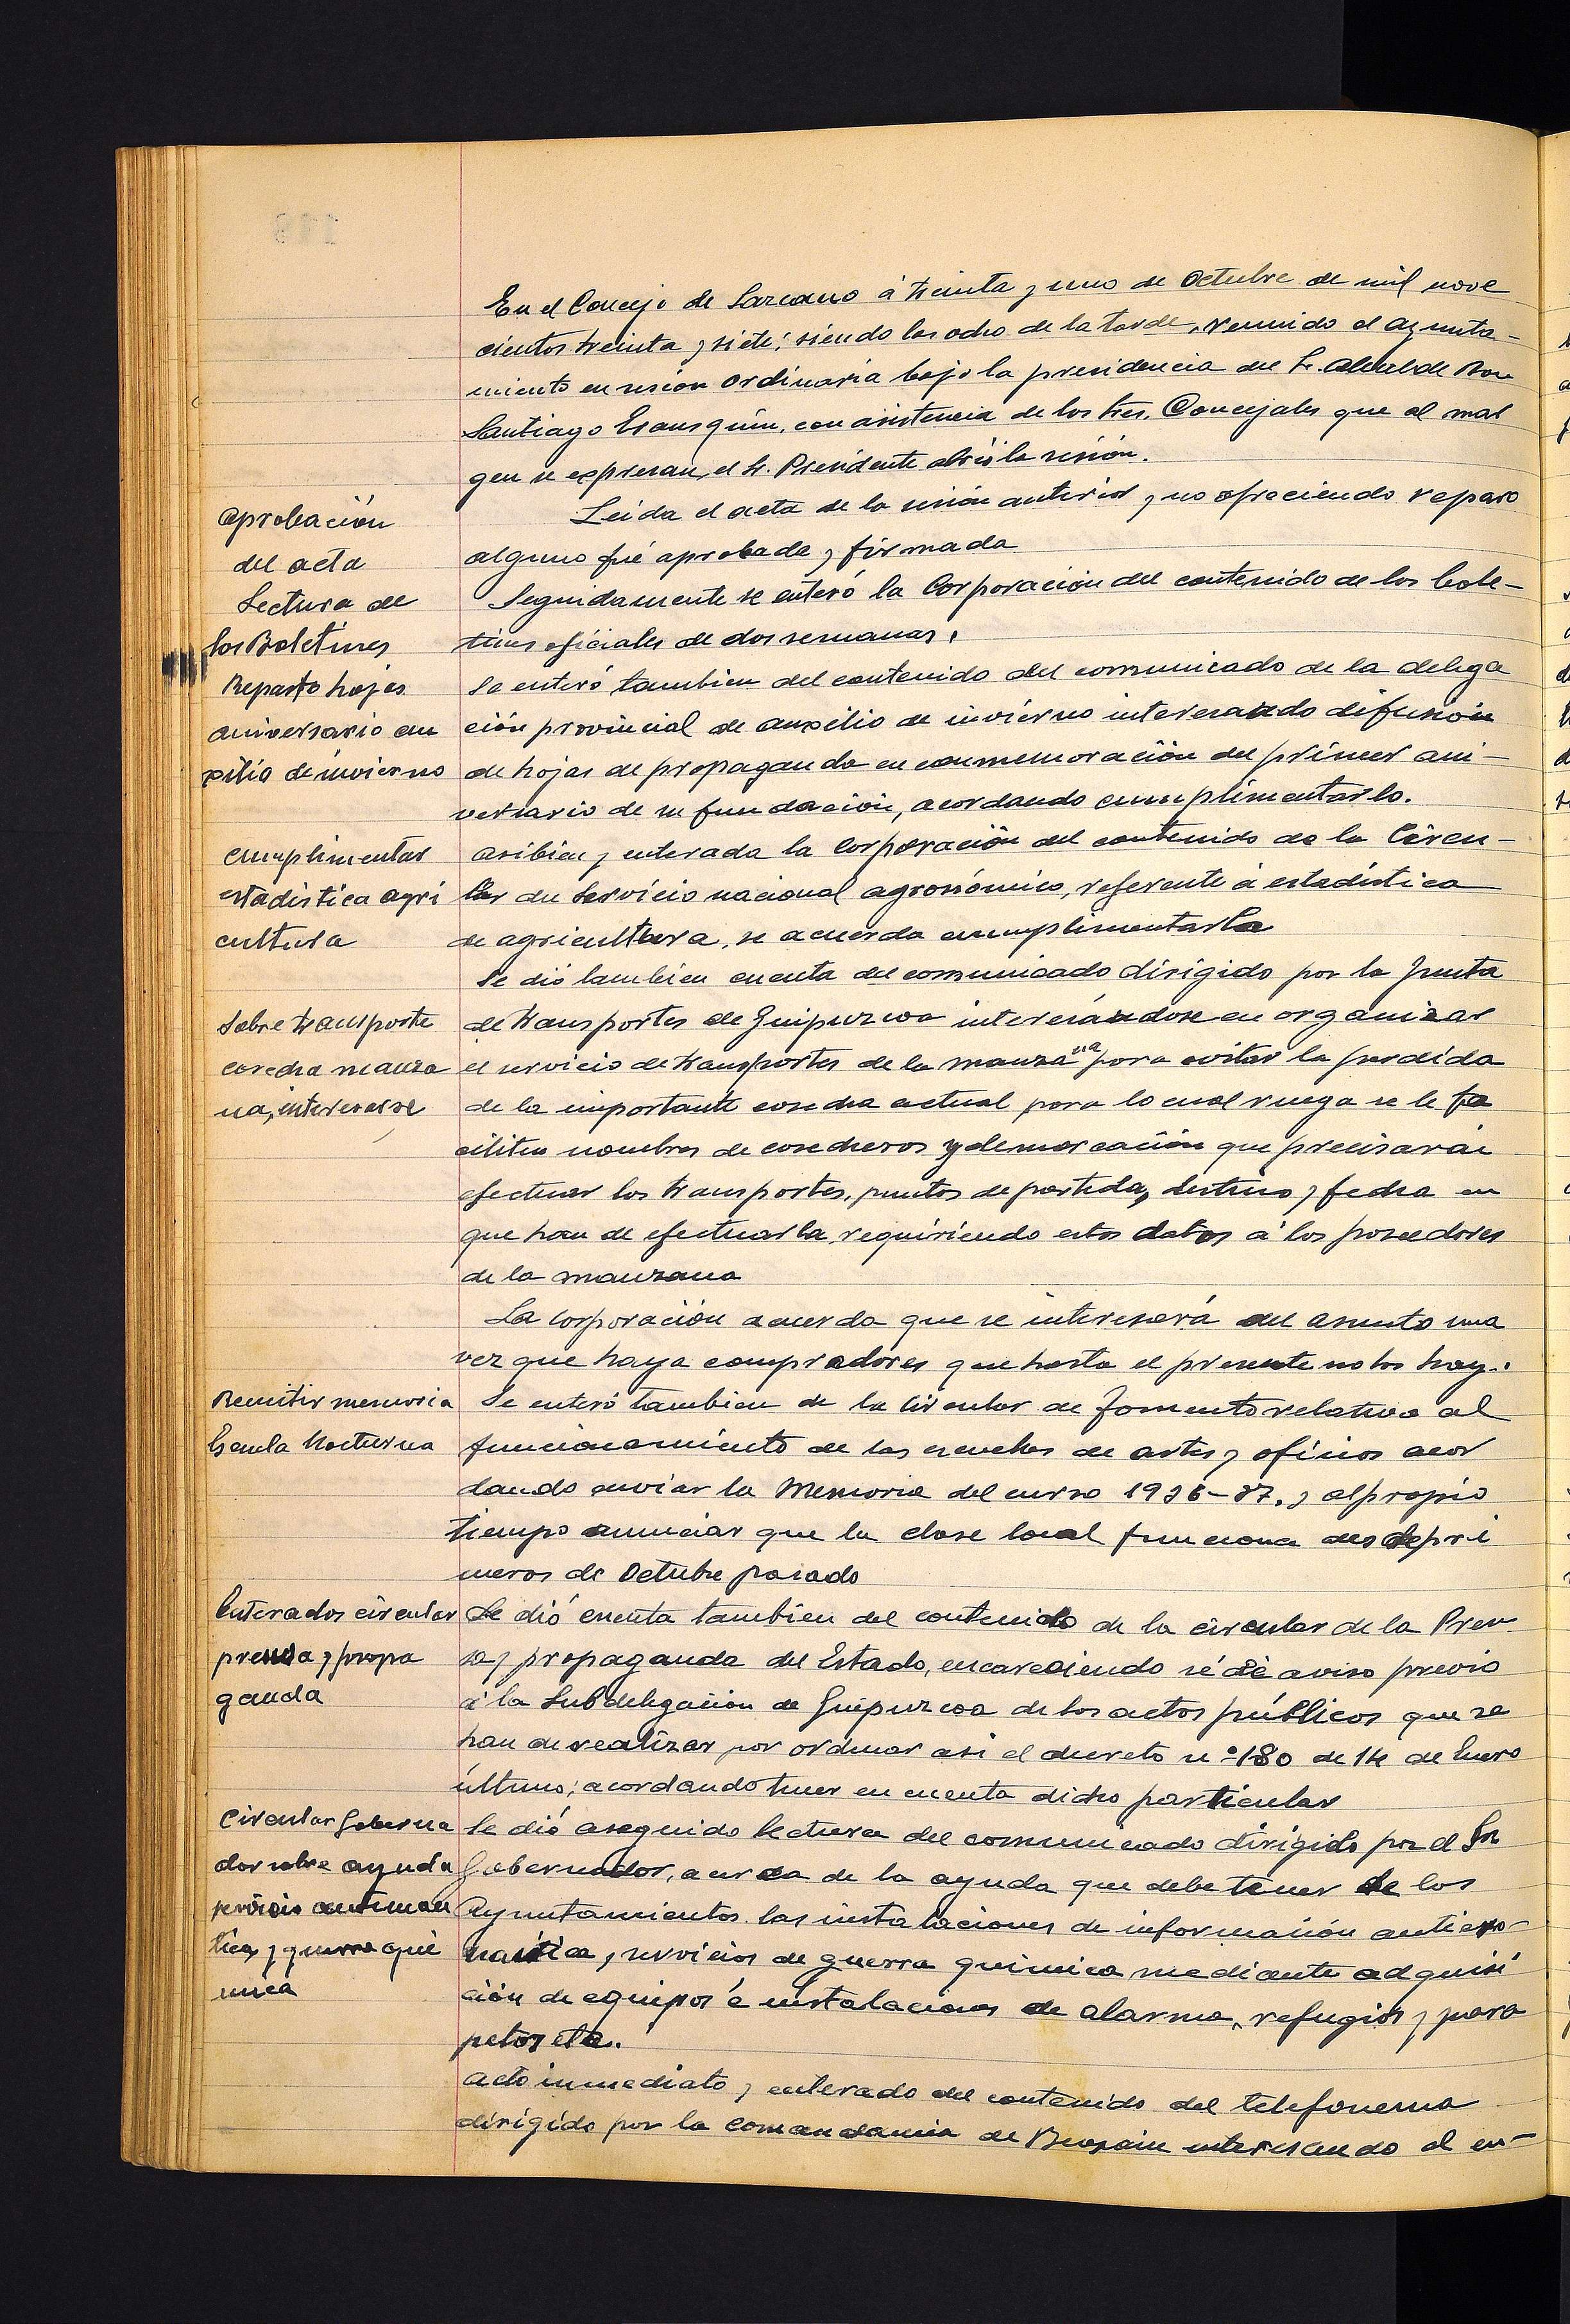 En el Concejo de Lazcano á treinta y uno de Octubre de mil nove
cientos treinta y siete; siendo las ocho de la tarde, reunido el ayunta-
miento en sesion ordinaria bajo la presidencia del Sr. Alcalde Don
Santiago Esansquin, con asistencia de los Sres. Concejales que al mar
gen se expresan, el Sr. Presidente abrió la sesión.
Aprobación
del acta
Leida el acta de la sesión anterior y no ofreciendo reparo
alguno fué aprobada y firmada
Lectura de
los Boletines
Seguidamente se enteró la Corporación del contenido de los bole-
tines oficiales de dos semanas.
Reparto hojas
aniversario au
xilio de invierno
Se enteró tambien del contenido del comunicado de la delega
ción provincial de auxilio de invierno interesando difusión
de hojas de propaganda en conmemoración del primer ani-
versario de su fundación, acordando cumplimentarlo.
Cumplimentar
estadistica agri
cultura
Asibien y enterada la Corporación del contenido de la Circu-
lar del Servicio nacional agronómico, referente á estadistica
de agricultura, se acuerda cumplimentarla
Sobre transporte
cosecha manza
na, interesarse
Se dió tambien cuenta del comunicado dirigido por la Junta
de transportes de Guipuzcoa interesándose en organizar
el servicio de transportes de la manzana para evitar la perdida
de la importante cosecha actual para lo cual ruega se le fa
ciliten nombres de cosecheros y demarcación que precisarán
efectuar los transportes, puntos de partida, destino y fecha en
que han de efectuarla, requiriendo estos datos á los poseedores
de la manzana
La corporación acuerda que se interesará del asunto una
vez que haya compradores que hasta el presente no los hay.
Remitir memoria
Escuela Nocturna
Se enteró tambien de la Circular de Fomento relativa al
funcionamiento de las escuelas de artes y oficios acor
dando enviar la Memoria del curso 1936-37. y al propio
tiempo anunciar que la clase local funciona desde pri
meros de Octubre pasado
Enterados circular
prensa y propa
ganda
Se dió cuenta tambien del contenido de la circular de la Pren
sa y propaganda del Estado, encareciendo sé dé aviso previo
á la Subdelegación de Guipuzcoa de los actos públicos que se
han de realizar por ordenar asi el decreto nº 180 de 14 de Enero
último; acordando tener en cuenta dicho particular
Circular Goberna
dor sobre ayuda
servicio
y guerra quí
mica
Se dió aseguido lectura del comunicado dirigido por el Sr
Gobernador, acerca de la ayuda que debe tener de los
Ayuntamientos las instalaciones de información antiaero-
náutica y servicios de guerra quimica mediante adquisi
ción de equipos é instalaciones de alarma, refugios y para
petos etc.
Acto inmediato y enterado del contenido del telefonema
dirigido por la comandancia de Beasain interesando el en-